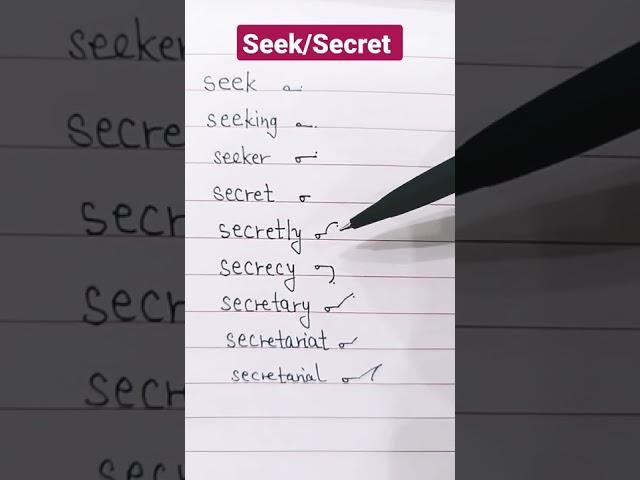 Seek/Secret
seek
seeking
seeker
secret
secretly
secrecy
secretary
secretariat
secretarial